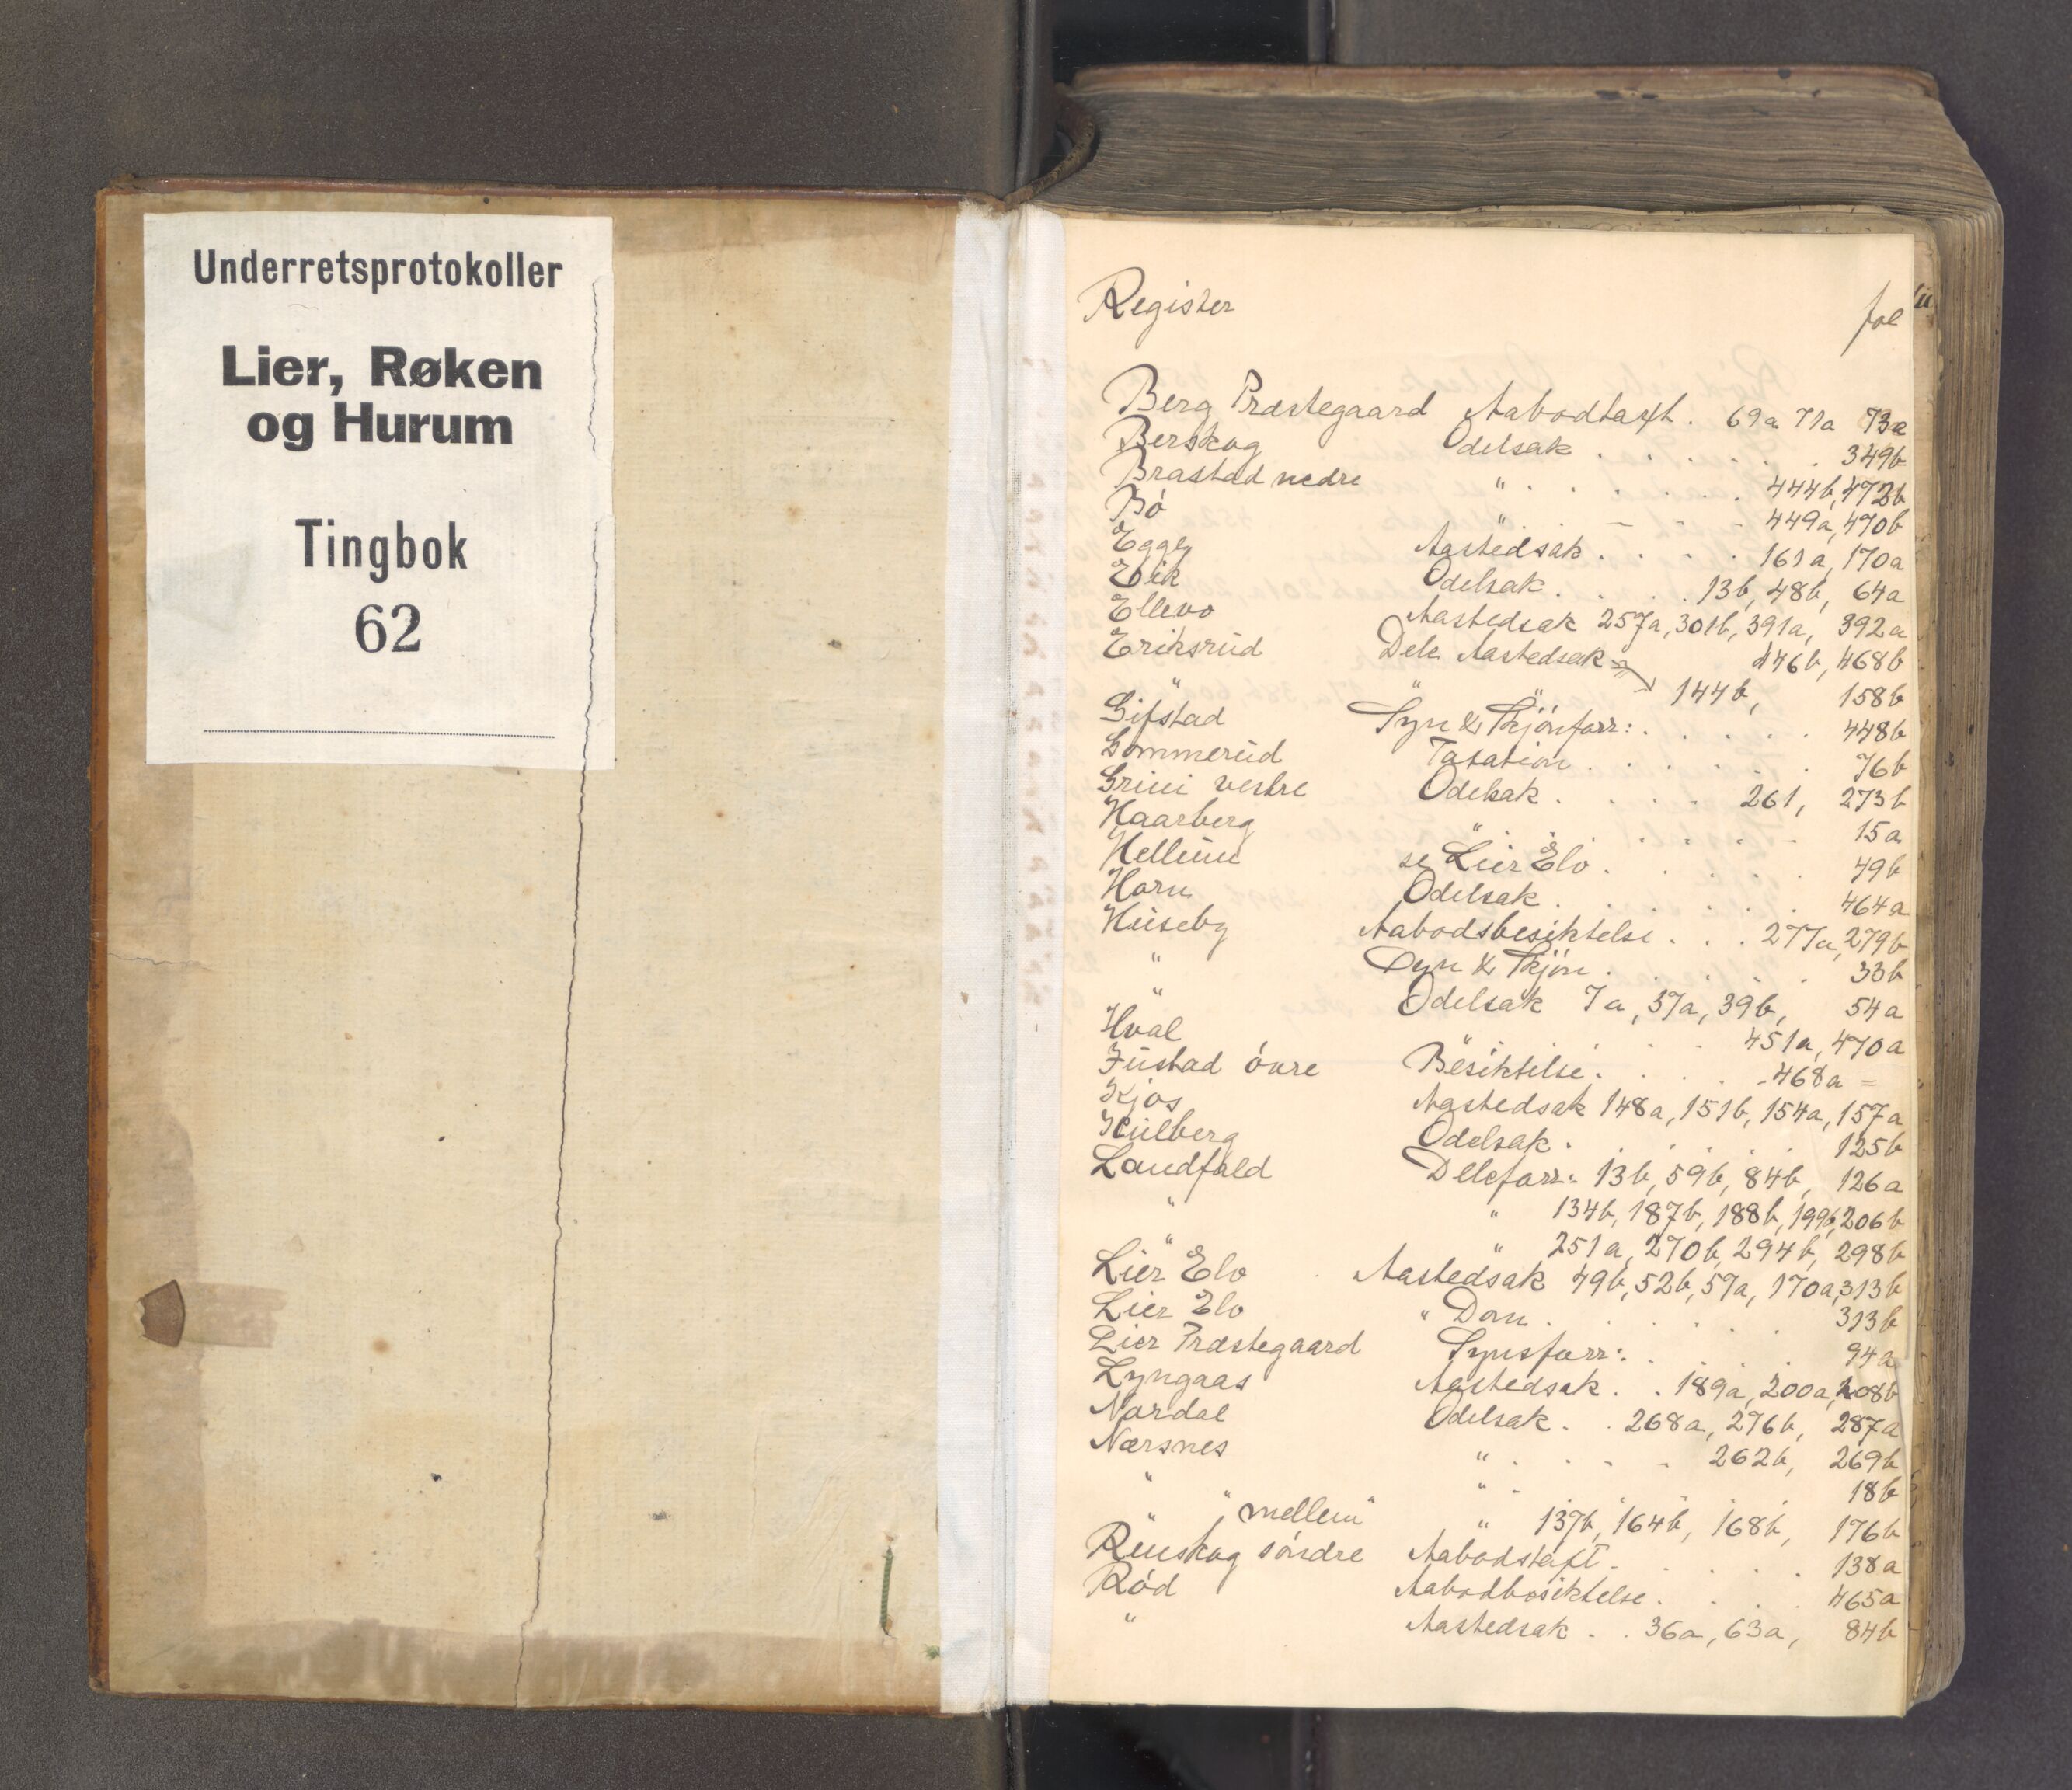 Underretsprotokoller
Lier, Røken
og Hurum
Tingbok
62
Register fol
Berg Præstegaard Aabodtaxt . 69a 71a 73a
Berskog Odelsak . . . . . . 349b
Brastad nedre " . . . . . . . 444b, 472b
Bö " . . . . 449a, 470b
Egge Aastedsak . . . . 161a, 170a
Eik Odelsak . . . . 13b, 48b, 64a
Ellevo Aastedsak 257a, 301b, 391a, 392a
Eriksrud Dele Aastedsak 446b, 468b
" " " 144b, 158b
Gifstad Syn & Skjönforr: . . . . . 448b
Gommerud Taxation . . . . . . 76b
Grini vestre Odelsak . . . . 261, 273b
Haarberg " . . . . . 15a
Hellum se Lier Elv . . . . . 49b
Horn Odelsak . . . . . . 464a
Huseby Aabodsbesiktelse . . . 277a, 279b
" Syn & Skjön . . . . . 33b
" Odelsak 7a, 37a, 39b, 54a
Hval " . . . 451a, 470a
Justad övre Besiktelse . . . . . 468a =
Kjos Aastedsak 148a, 151b, 154a, 157a
Kulberg Odelsak . . . . . 125b
Landfald Deleforr: 13b, 59b, 84b, 126a
" " 134b, 187b, 188b, 199b, 206b
" " 251a, 270b, 294b, 298b
Lier Elv Aastedsak 49b, 52b, 59a, 170a, 313b
Lier Elv " Dom . . . . . . 313b
Lier Præstegaard Synsforr: . . 94a
Lyngaas Aastedsak . . 189a, 200a, 208b
Nordal Odelsak . . 268a, 276b, 287a
Nærsnes " . . . . 262b, 269b
" " . 18b
" " mellem " 137b, 164b, 168b, 176b
Renskog söndre Aabodstaxt . . . . . 138a
Röd Aabodbesiktelse . . . . 465a
" Aastedsak . . 36a, 63a, 84b